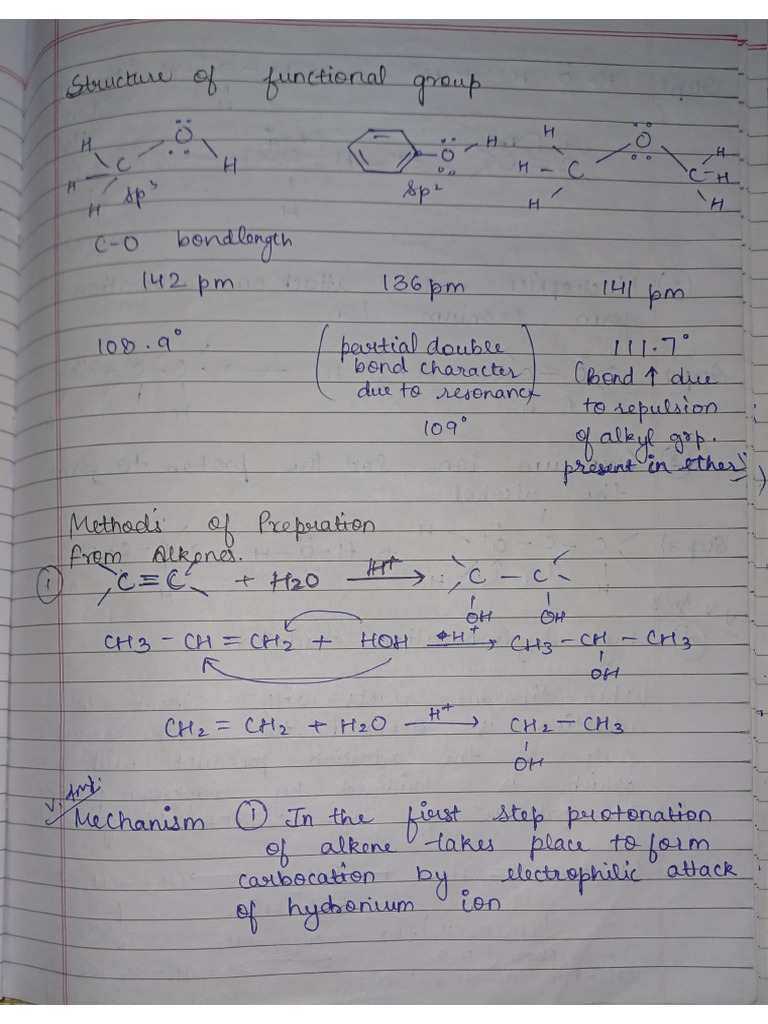 Structure of functional group
H H H C sp3 O H
sp2 O H
H H - C H O C - H H H
C-O bondlength
142 pm 136 pm 141 pm
108.9° (partial double bond character due to resonance) 111.7°
109°
(Bond ↑ due
to repulsion
of alkyl grp.
present in ether)
Methods of Prepration
from Alkenes.
① C ≡ C + H2O H+ → C - C
OH OH
CH3 - CH = CH2 + HOH H+ → CH3 - CH - CH3
OH
CH2 = CH2 + H2O H+ → CH2 - CH3
OH
V. Imt.
Mechanism ① In the first step protonation
of alkene takes place to form
carbocation by electrophilic attack
of hydronium ion